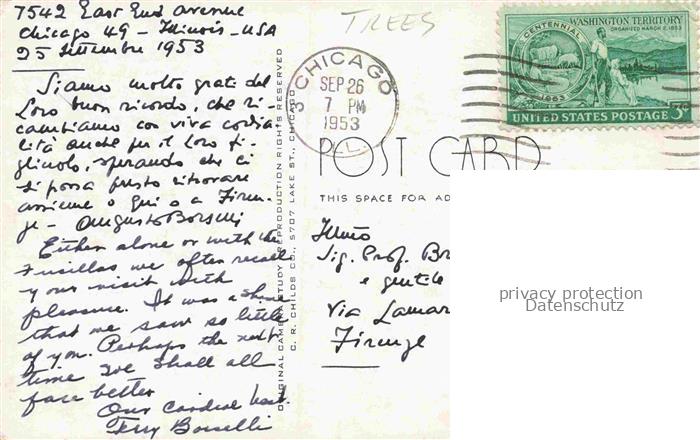 7542 East End Avenue
Chicago 49 - Illinois - USA
25 Settembre 1953
Siamo molto grati del
Loro buon ricordo, che ri-
cambiamo con viva cordia-
lità anche per il Loro fi-
gliuolo, sperando che ci
si possa presto ritrovare
assieme o qui o a Firen-
ze - Augusto Borselli
Either alone or with the
Fusillas we often recall
your visit with
pleasure. It was a shame
that we saw so little
of you. Perhaps the next
time we shall all
fare better
Our cordial best
Ferry Borselli
ORIGINAL CAMERA STUDY REPRODUCTION RIGHTS RESERVED
C. R. CHILDS CO., 5707 LAKE ST., CHICAGO
TREES
CHICAGO
3
SEP 26
7 PM
1953
ILL.
CENTENNIAL
1953
WASHINGTON TERRITORY
ORGANIZED MARCH 2, 1853
3¢
UNITED STATES POSTAGE
POST CARD
THIS SPACE FOR AD
Illmo
Sig. Prof. Br
e gentile
Via Lamar
Firenze
privacy protection
Datenschutz